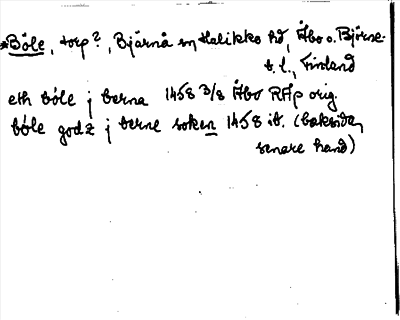 *Böle, torp?, Bjärnå sn, Halikko hd, Åbo o. Björne-
b. l., Finland
eth böle j berna 1458 3/8 Åbo RAp orig.
böle godz j berne soken 1458 ib. (baksidan,
senare hand)